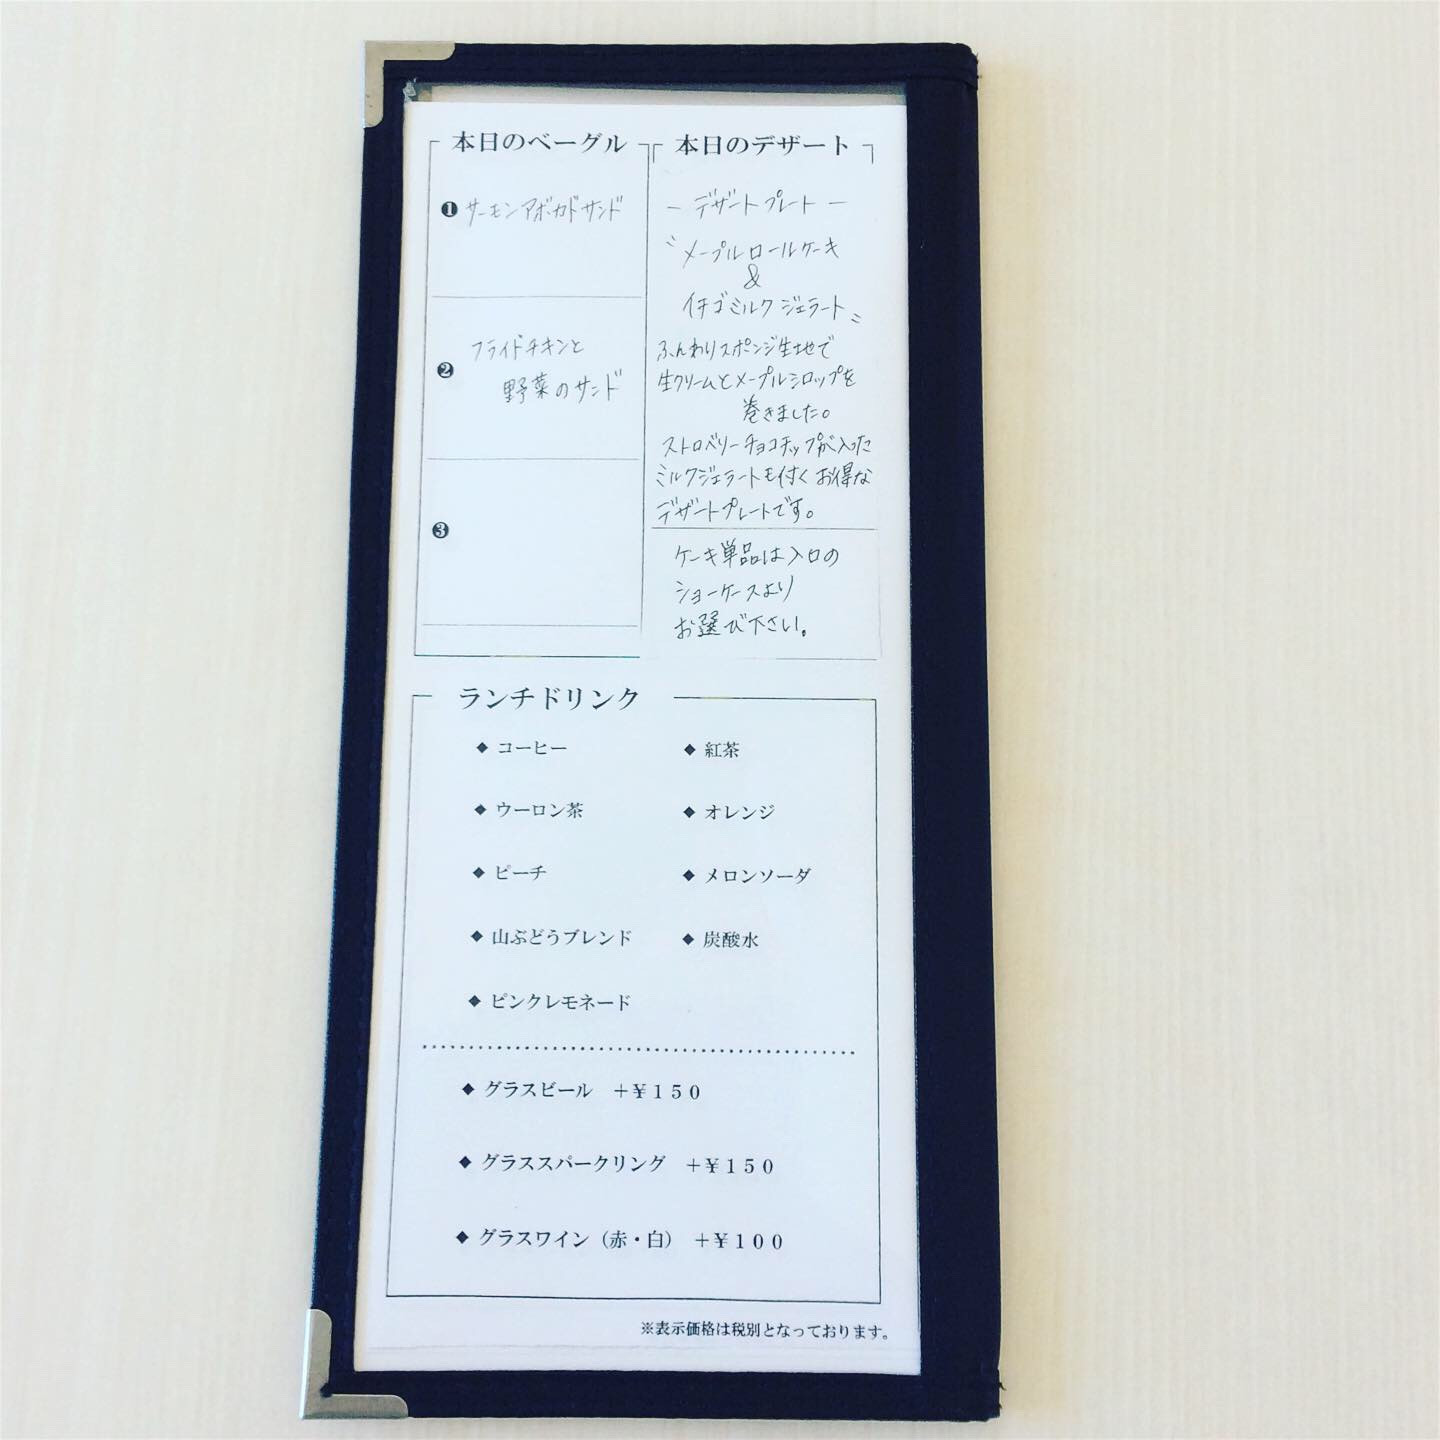 本日のベーグル
❶ サーモンアボカドサンド
❷ フライドチキンと
野菜のサンド
❸
本日のデザート
ー デザートプレート ー
〝メープルロールケーキ
&
イチゴミルクジェラート〟
ふんわりスポンジ生地で
生クリームとメープルシロップを
巻きました。
ストロベリーチョコチップが入った
ミルクジェラートも付くお得な
デザートプレートです。
ケーキ単品は入口の
ショーケースより
お選び下さい。
ランチドリンク
◆ コーヒー
◆ 紅茶
◆ ウーロン茶
◆ オレンジ
◆ ピーチ
◆ メロンソーダ
◆ 山ぶどうブレンド
◆ 炭酸水
◆ ピンクレモネード
◆ グラスビール ＋￥１５０
◆ グラススパークリング ＋￥１５０
◆ グラスワイン（赤・白） ＋￥１００
※表示価格は税別となっております。